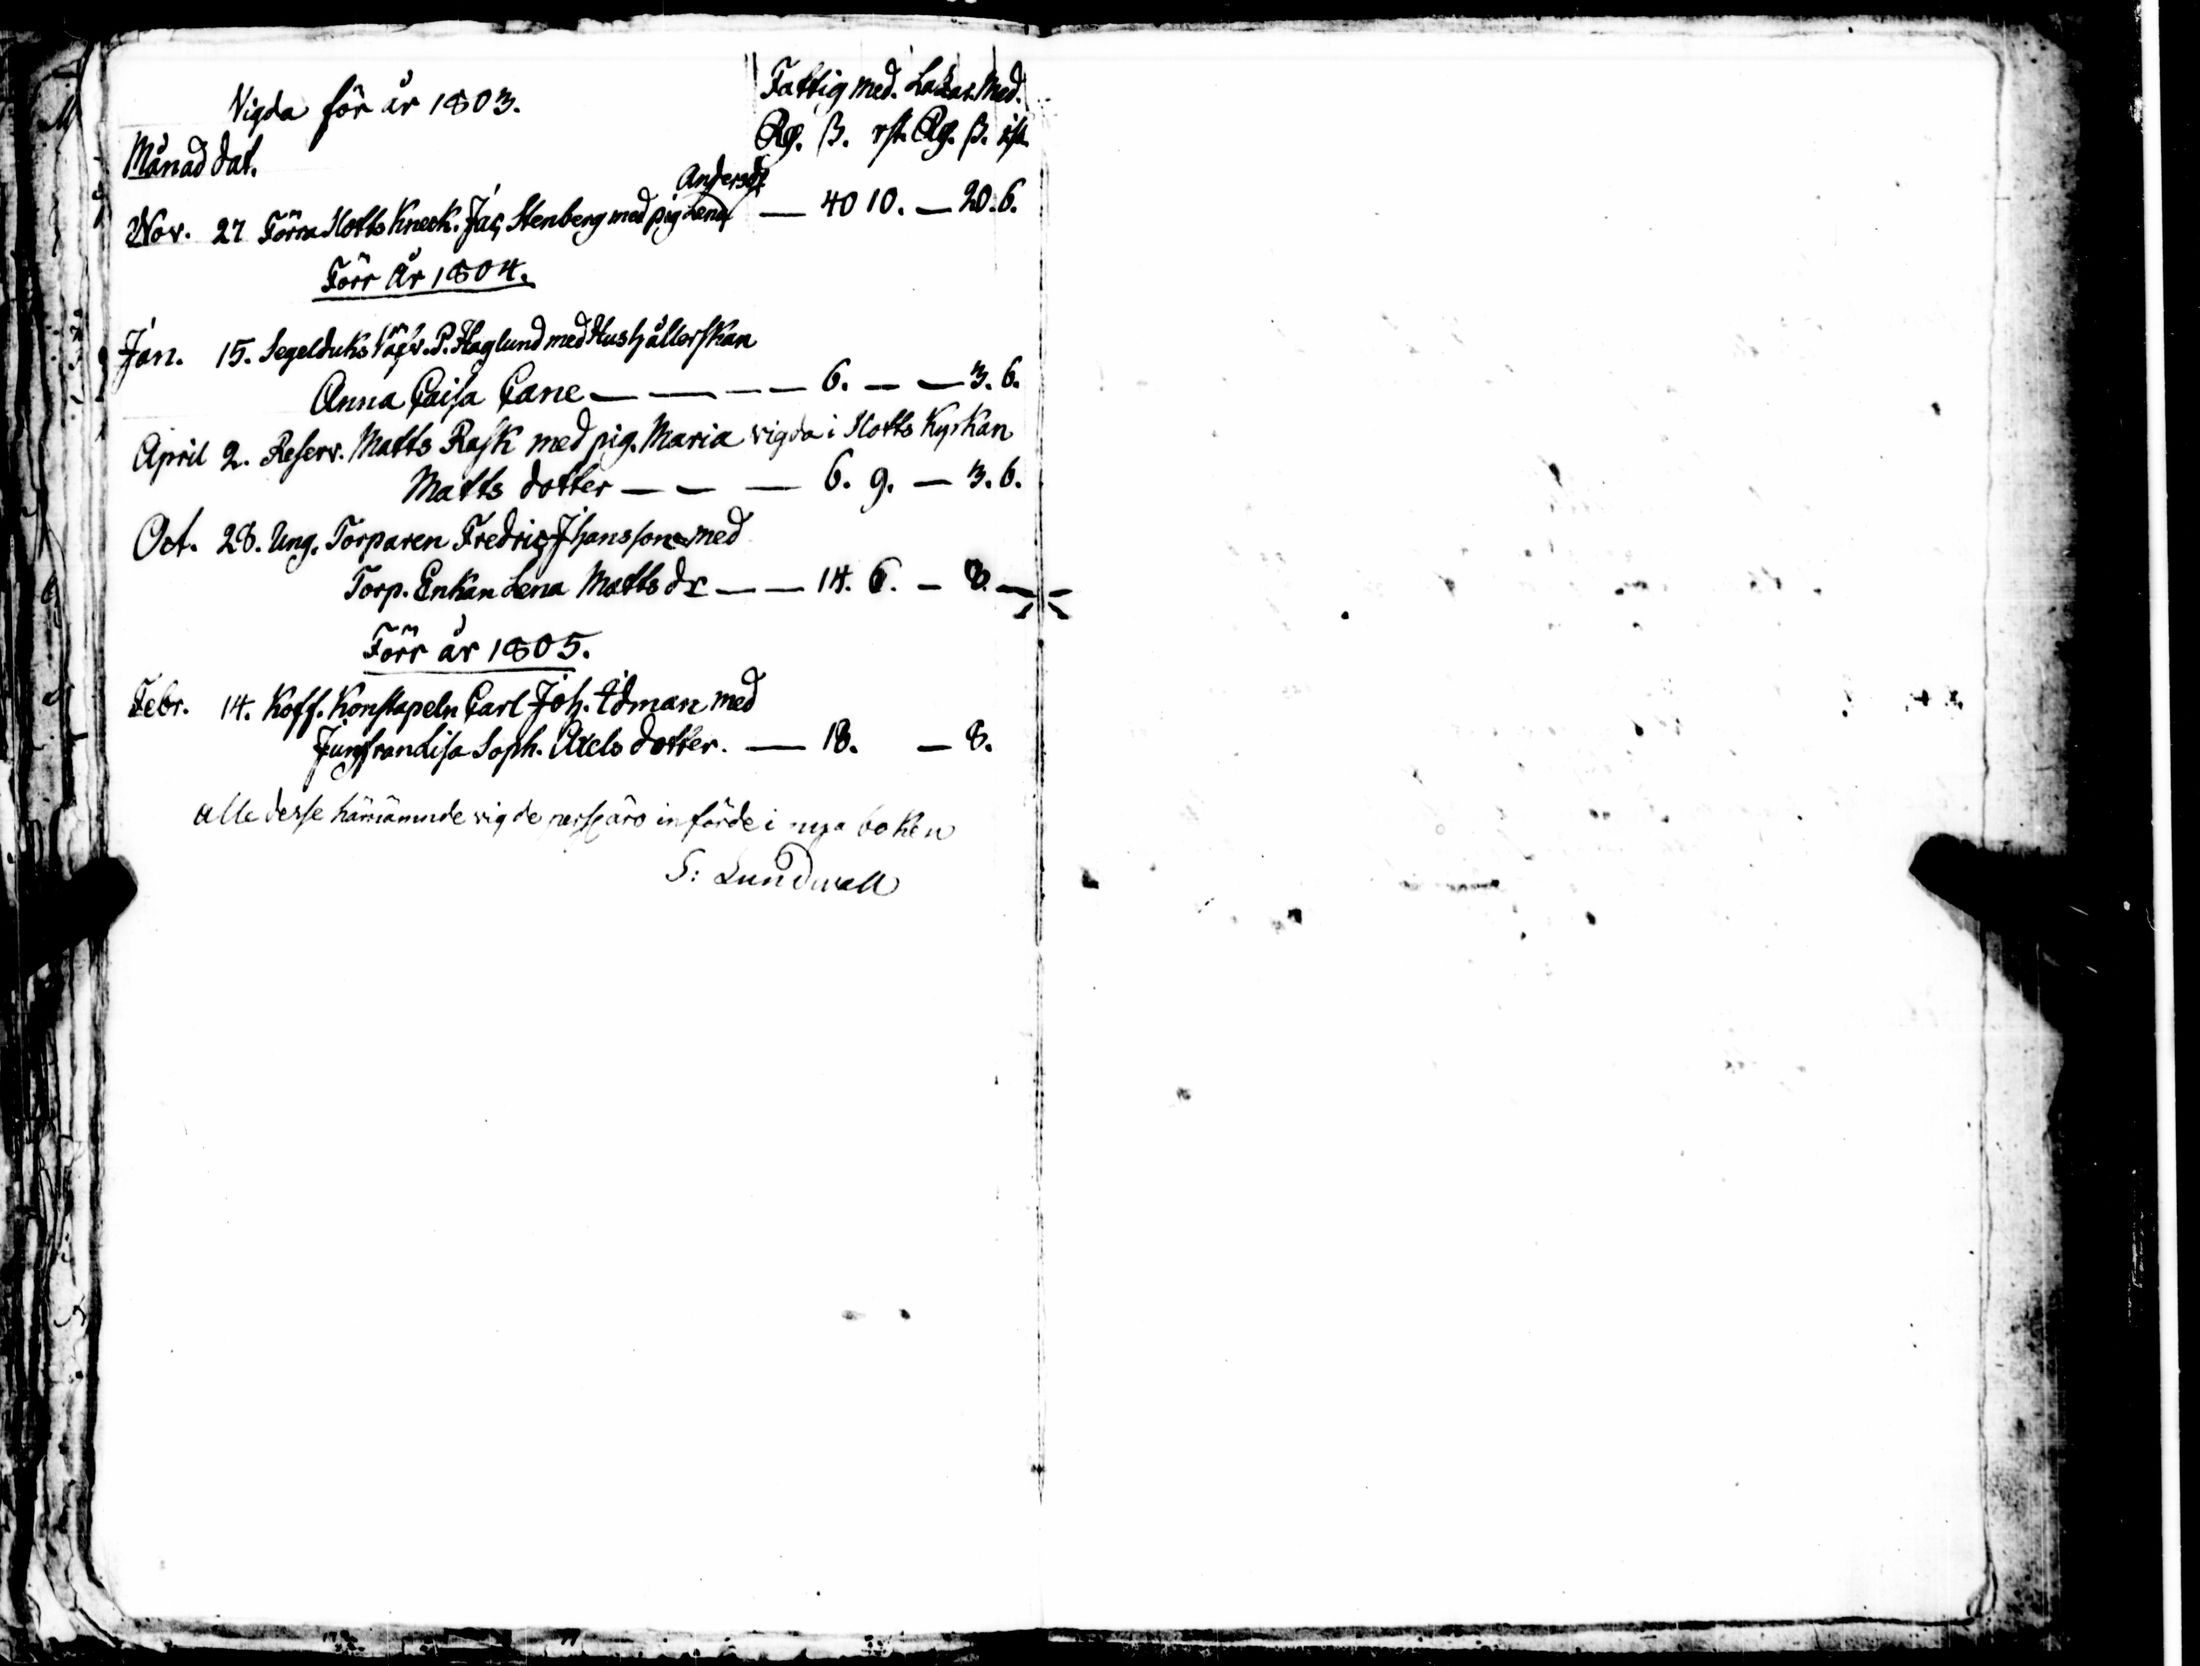 Vigda för år 1803.
Fattig med. Lazar. Med.
Månad dat.
Rg. ß. rst. Rg. ß. rst.
Andersdr
Nov. 27 Förra Slotts Kneck. Jac. Stenberg med pig Lena — 40 10. — 20. 6.
Förr År 1804.
Jan. 15. Segelduks Väfv. P. Haglund med Hushållerskan
Anna Caisa Cane — — — — 6. — — 3. 6.
April 2. Reserv. Matts Rask med pig. Maria vigda i Slotts Kyrkan
Matts dotter — — — 6. 9. — 3. 6.
Oct. 28. Ung. Torparen Fredric Jhansson med
Torp. Enkan Lena Matts dr — — 14. 6. — 8. —
Förr år 1805.
Febr. 14. Koff. Konstapeln Carl Joh. Ödman med
Jungfrau Lisa Soph. Axels dotter. — 18. — 8.
alle desse härnämnde vigde pers. äro införde i nya boken
S: Lundwall